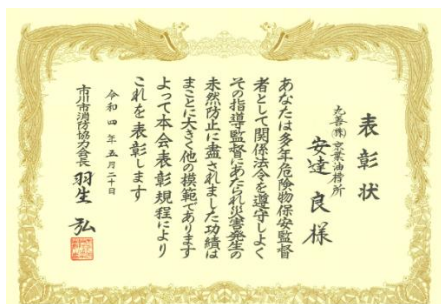 表彰状
丸善㈱京葉油槽所
安達良様
あなたは多年危険物保安監督
者として関係法令を遵守しよく
その指導監督にあたられ災害発生の
未然防止に盡されました功績は
まことに大きく他の模範であります
よって本会表彰規程により
これを表彰します
令和四年五月二十日
市川市消防協力会長 羽生弘